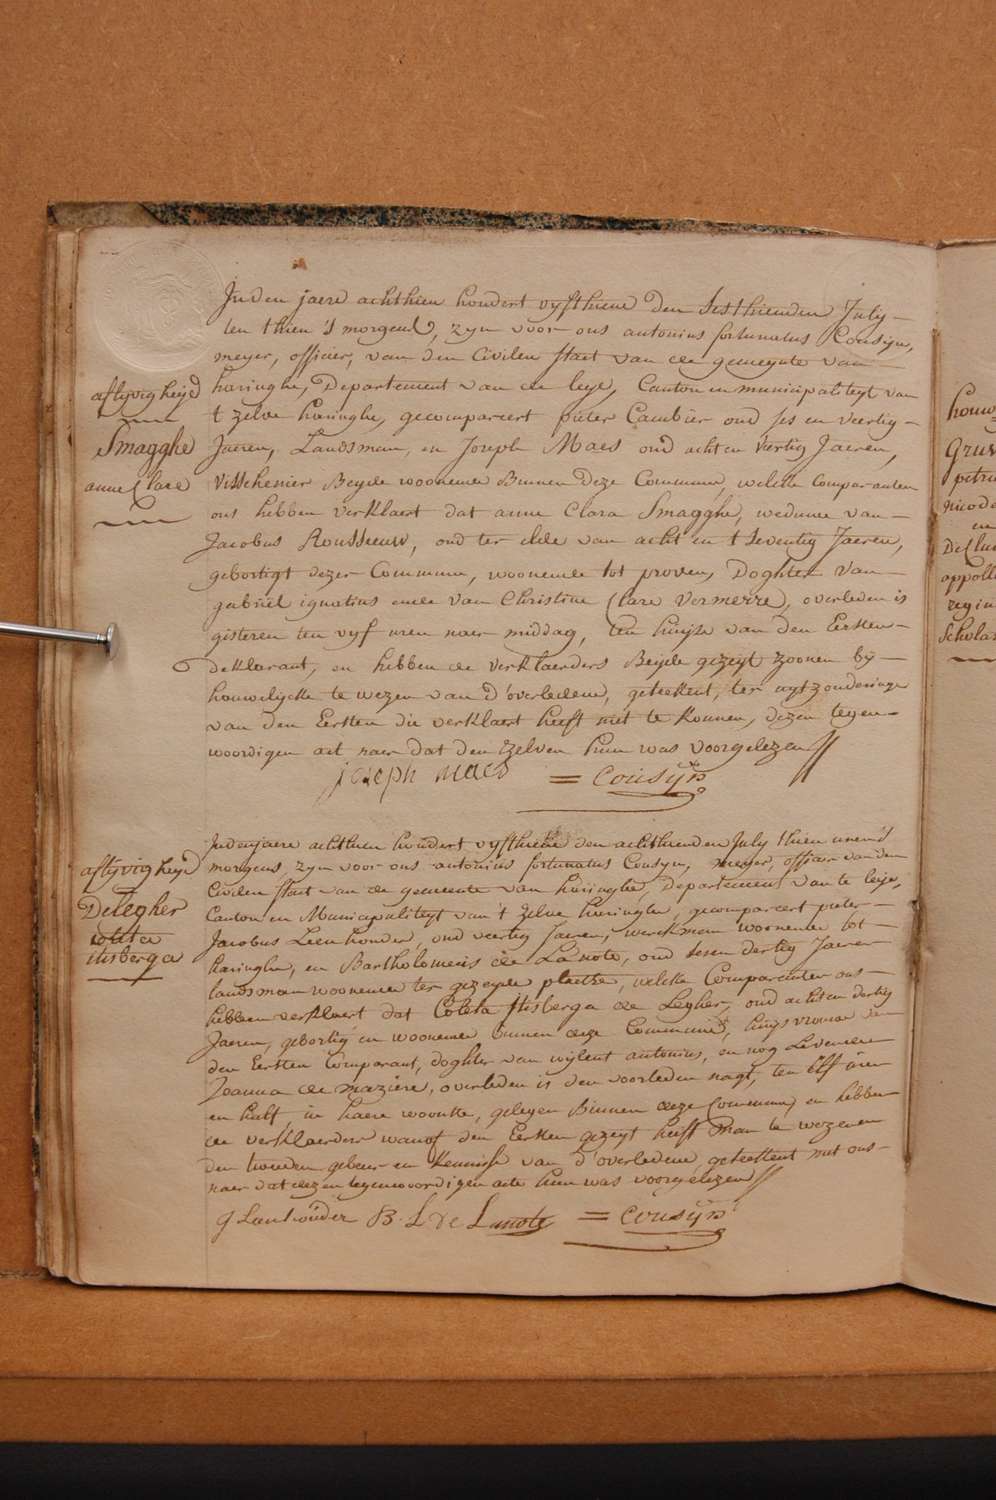 Inden jaere achthien hondert vyfthiene den Sesthienden July
ten thien 's morgens, zyn voor ons antonius fortunatus Cousyn,
meyer, officier, van den Civilen staet van de gemeynte van
haringhe, Departement van de leye, Canton en municipaliteyt van
t zelve haringhe, gecompareert pieter Cambier oud ses en veertig
Jaeren, Landsman, en Joseph Maes oud acht en Veertig Jaeren,
Visschenier Beyde woonende Binnen Deze Commune, welke Comparanten
ons hebben Verklaert dat anne Clara Smagghe, weduwe van
Jacobus Rousseeuw, oud ter elde van acht en t Seventig Jaeren,
gebortigt dezer Commune, woonende tot proven, Doghter van
gabriel ignatius ende van Christine Clare Vermerre, overleden is
gisteren ten vyf uren naer middag, ten huyse van den Eersten
deklarant, en hebben de verklaerders Beyde gezeyt zoonen by
houwelycke te wezen van d'overledene, geteekent, ter uytzonderinge
van den Eersten die verklaert heeft niet te konnen, dezen tegen-
woordigen act naer dat den zelven hun was voorgelezen
joseph maes = Cousÿn
aflyvigheyd
Smagghe
anne Clare
Inden jaere achthien hondert vyfthiene den achthienden July thien uren 's
morgens zyn voor ons antonius fortunatus Cousyn, meyer, officier van den
Civilen staet van de gemeente van haringhe, Departement van de leije,
Canton en Municipaliteyt van 't zelve haringhe, gecompareert pieter
Jacobus Leenhouder, oud veertig Jaeren, werckman woonende tot
haringhe, en Bartholomeus de Lanote, oud seven dertig Jaeren
landsman woonende ter gezeyde plaetse, welke Comparanten ons
hebben verklaert dat Coleta Itisberga de Legher, oud acht en dertig
Jaeren, gebortig en woonende binnen deze Commune, huysvrouw van
den Eersten Comparant, doghter van wylent antonius, en nog Levende
Joanna de maziere, overleden is den voorleden nagt, ten elf uren
en half, in haere woonste, gelegen Binnen deze Commune, en hebben
de verklaerders wanof den Eersten gezeyt heeft Man te wezen en
den tweeden gebeur en kennisse van d'overledene geteekent met ons
naer dat dezen tegenwoordigen acte hun was voorgelezen
J Leenhouder B. L de Lanote = Cousÿn
aflyvigheyd
Delegher
coleta
itisberga
houw
Gruw
petru
nicode
en
De Clu
appoll
regin
Schola